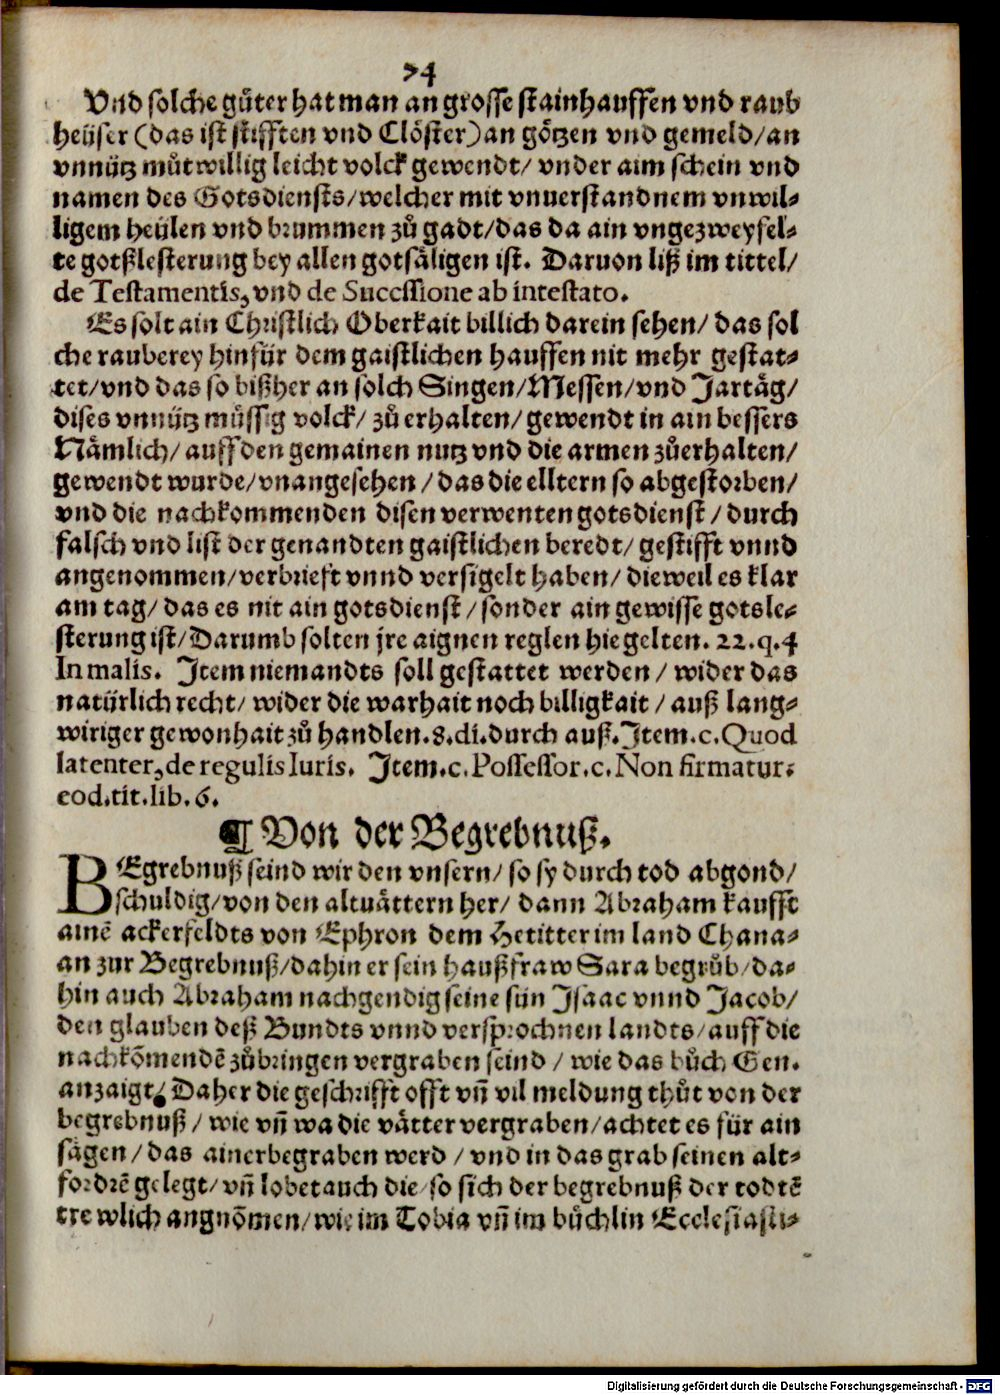 74
Vnd solche gůter hat man an grosse stainhauffen vnd raub
heüser (das ist stifften vnd Clöster) an götzen vnd gemeld/an
vnnütz můtwillig leicht volck gewendt/ vnder aim schein vnd
namen des Gotsdiensts/welcher mit vnuerstandnem vnwil-
ligem heülen vnd brummen zů gadt/das da ain vngezweyfel-
te gotßlesterung bey allen gotsäligen ist. Daruon liß im tittel/
de Testamentis, vnd de Succssione ab intestato.
Es solt ain Christlich Oberkait billich darein sehen/ das sol
che rauberey hinfür dem gaistlichen hauffen nit mehr gestat-
tet/vnd das so bißher an solch Singen/Messen/vnd Jartäg/
dises vnnütz müssig volck/ zů erhalten/ gewendt in ain bessers
Nämlich/ auff den gemainen nutz vnd die armen zůerhalten/
gewendt wurde/vnangesehen/das die elltern so abgestorben/
vnd die nachkommenden disen verwenten gotsdienst/durch
falsch vnd list der genandten gaistlichen beredt/ gestifft vnnd
angenommen/verbrieft vnnd versigelt haben/ dieweil es klar
am tag/ das es nit ain gotsdienst/sonder ain gewisse gotsle-
sterung ist/Darumb solten jre aignen reglen hie gelten. 22.q.4
In malis. Item niemandts soll gestattet werden/ wider das
natürlich recht/ wider die warhait noch billigkait/auß lang-
wiriger gewonhait zů handlen.8.di.durch auß.Item.c.Quod
latenter, de regulis Iuris. Item.c.Possessor.c.Non firmatur.
eod.tit.lib.6.
¶ Von der Begrebnuß.
BEgrebnuß seind wir den vnsern/ so sy durch tod abgond/
schuldig/von den altuättern her/ dann Abraham kaufft
ainē ackerfeldts von Ephron dem Hetitter im land Chana-
an zur Begrebnuß/dahin er sein haußfraw Sara begrůb/da-
hin auch Abraham nachgendig seine sün Jsaac vnnd Jacob/
den glauben deß Bundts vnnd versprochnen landts/auff die
nachkōmendē zůbringen vergraben seind/ wie das bůch Gen.
anzaigt/ Daher die geschrifft offt vñ vil meldung thůt von der
begrebnuß/ wie vñ wa die vätter vergraben/achtet es für ain
sägen/das ainer begraben werd/vnd in das grab seinen alt-
fordrē gelegt/vñ lobet auch die/so sich der begrebnuß der todtē
trewlich angnōmen/wie im Tobia vñ im bůchlin Ecclesiasti-
Digitalisierung gefördert durch die Deutsche Forschungsgemeinschaft - DFG